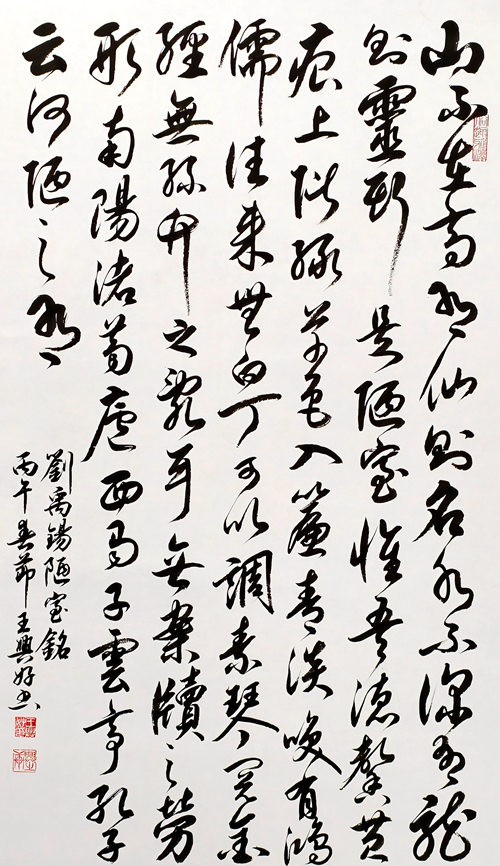 山不在高有仙則名水不深有龍
則靈斯是陋室惟吾德馨苔
痕上階綠草色入簾青談笑有鴻
儒往來無白丁可以調素琴閱金
經無絲竹之亂耳無案牘之勞
形南陽諸葛廬西蜀子雲亭孔子
云何陋之有
劉禹錫陋室銘
丙午春節王興好書